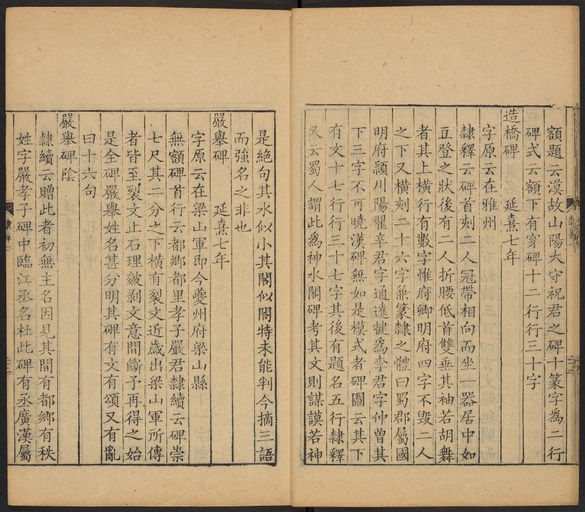 額題云漢故山陽太守祝君之碑十篆字為二行
碑式云額下有穿碑十二行行三十字
造橋碑　　延熹七年
字原云在雅州
隸釋云碑首刻二人冠帶相向而坐一器居中如
豆登之狀後有二人折腰低首雙垂其袖若胡舞
者其上橫行有數字惟府卿明府四字不毀二人
之下又橫刻二十六字兼篆隸之體曰蜀郡屬國
明府潁川陽翟辛君字通達犍為李君字仲曾其
下三字不可曉漢碑無如是模式者碑圖云其下
有文十七行行三十七字其後有題名五行隸釋
又云蜀人謂此為神水閣碑考其文則謀謨若神
是絕句其水似小其閣似閣特未能判今摘三語
而強名之非也
嚴舉碑　　延熹七年
字原云在梁山軍即今夔州府梁山縣
無額碑首行云都鄉都里孝子嚴君隸續云碑崇
七尺其二分之下橫有裂文近歲出梁山軍所傳
者皆至裂文止石理皴剥文意間斷予再得之始
是全碑嚴舉姓名甚分明其碑有文有頌又有亂
曰十六句
嚴舉碑陰
隸續云贈此者初無主名因見其間有都鄉有秩
姓字嚴孝子碑中臨江丞名杜此碑有丞廣漢屬